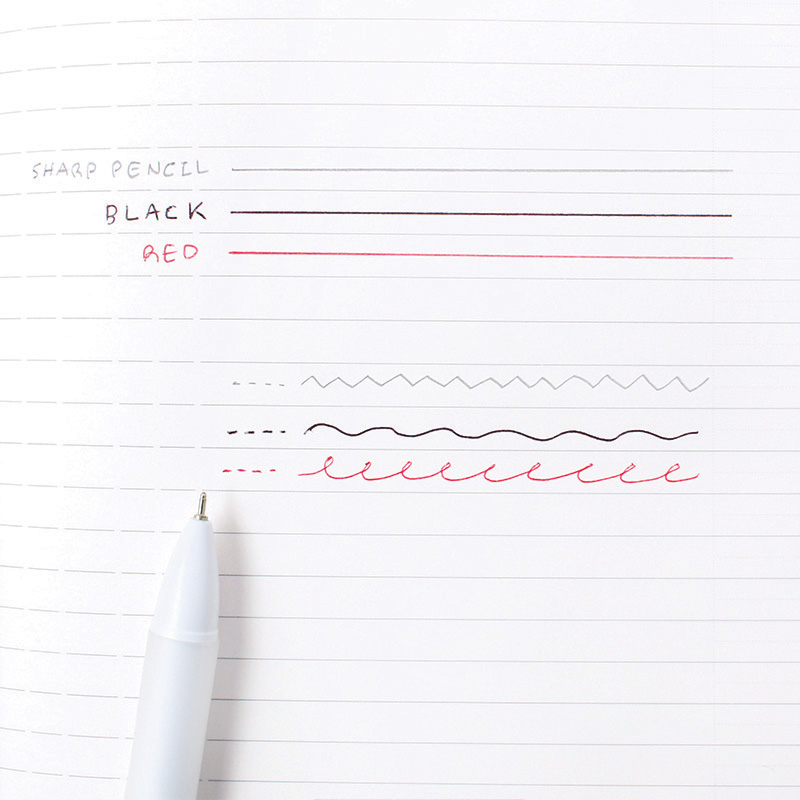 SHARP PENCIL
BLACK
RED